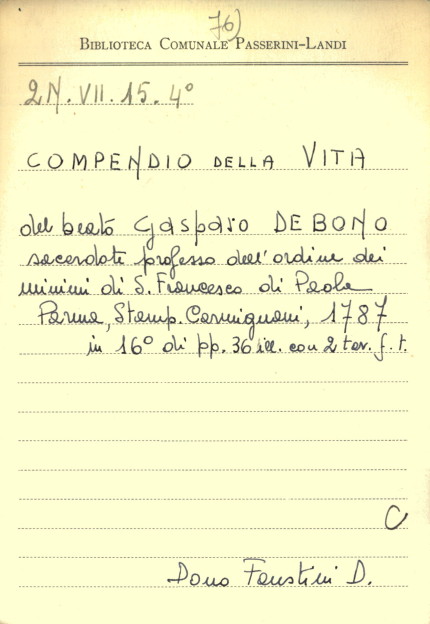 76)
BIBLIOTECA COMUNALE PASSERINI-LANDI
2N.VII.15.4°
COMPENDIO DELLA VITA
del beato Gasparo DE BONO
sacerdote professo dell'ordine dei
minimi di S. Francesco di Paola
Parma, Stamp. Carmignani, 1787
in 16° di pp. 36 ill. con 2 tav. f. t.
C
Dono Faustini D.